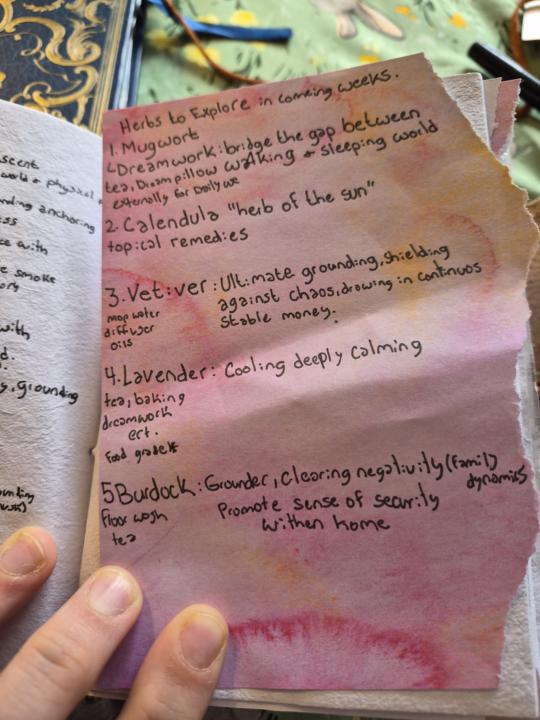 scent
world & physical
nding anchoring
ess
ce with
e smoke
ory
with
d.
y, grounding
ounding
Herbs to Explore in comeing weeks.
1. Mugwort
Dreamwork: bridge the gap between
tea, Dream pillow walking + sleeping world
externally for Daily use
2. Calendula "herb of the sun"
topical remedies
3. Vetiver: Ultimate grounding, shielding
mop water against chaos, drawing in continuos
diffuser stable money.
oils
4. Lavender: Cooling deeply calming
tea, baking
dreamwork
ect.
food grade*
5 Burdock: Grounder, Clearing negativity (family
floor wash Promote sense of security dynamics
tea withen home